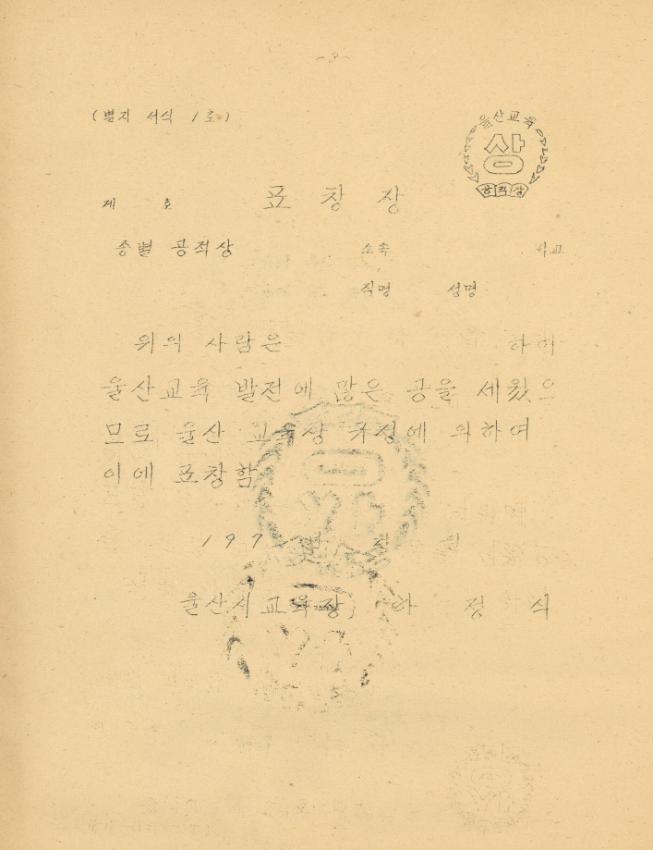 -3-
(별지 서식 1호)
울산교육
상
공적상
제 호 표창장
종별 공적상 소속 학교
직명 성명
위의 사람은 하여
울산교육 발전에 많은 공을 세웠으
므로 울산 교육상 규정에 의하여
이에 표창함
197 년 월 일
울산시교육장 정 식